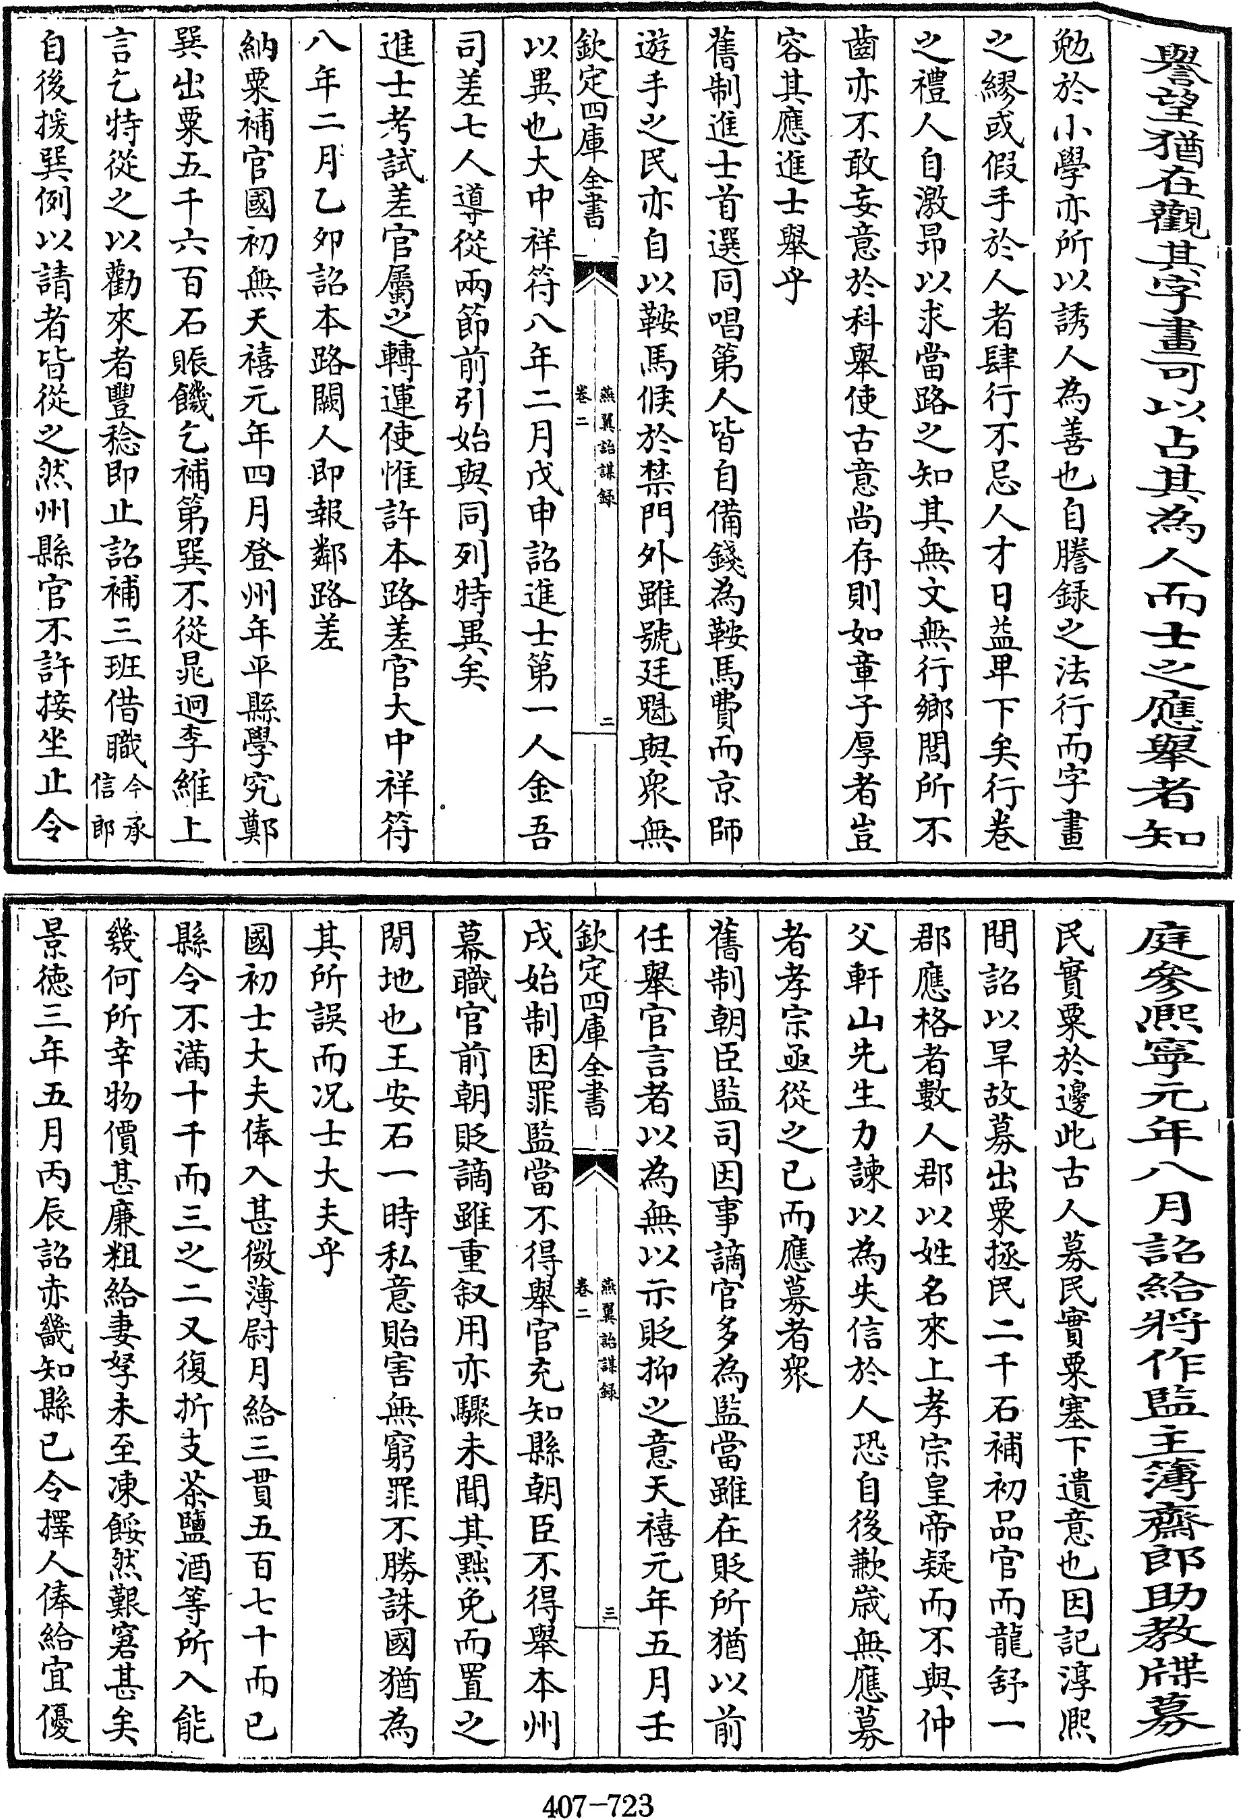 譽望猶在觀其字畫可以占其為人而士之應舉者知
勉於小學亦所以誘人為善也自謄録之法行而字畫
之繆或假手於人者肆行不忌人才日益卑下矣行卷
之禮人自激昂以求當路之知其無文無行鄉閭所不
齒亦不敢妄意於科舉使古意尚存則如章子厚者豈
容其應進士舉乎
舊制進士首選同唱第人皆自備錢為鞍馬費而京師
遊手之民亦自以鞍馬候於禁門外雖號廷魁與衆無
欽定四庫全書
燕翼詒謀録
卷二
二
以異也大中祥符八年二月戊申詔進士第一人金吾
司差七人導從兩節前引始與同列特異矣
進士考試差官屬之轉運使惟許本路差官大中祥符
八年二月乙夘詔本路闕人即報鄰路差
納粟補官國初無天禧元年四月登州牟平縣學究鄭
巽出粟五千六百石賑饑乞補第巽不從晁迥李維上
言乞特從之以勸來者豐稔即止詔補三班借職今承信郎
自後援巽例以請者皆從之然州縣官不許接坐止令
庭參熙寧元年八月詔給將作監主簿齋郎助教牒募
民實粟於邊此古人募民實粟塞下遺意也因記淳熙
間詔以旱故募出粟拯民二千石補初品官而龍舒一
郡應格者數人郡以姓名來上孝宗皇帝疑而不與仲
父軒山先生力諫以為失信於人恐自後歉歲無應募
者孝宗亟從之已而應募者衆
舊制朝臣監司因事謫官多為監當雖在貶所猶以前
任舉官言者以為無以示貶抑之意天禧元年五月壬
欽定四庫全書
燕翼詒謀録
卷二
三
戌始制因罪監當不得舉官充知縣朝臣不得舉本州
幕職官前朝貶謫雖重叙用亦驟未聞其黜免而置之
閒地也王安石一時私意貽害無窮罪不勝誅國猶為
其所誤而况士大夫乎
國初士大夫俸入甚微薄尉月給三貫五百七十而已
縣令不滿十千而三之二又復折支茶鹽酒等所入能
幾何所幸物價甚廉粗給妻孥未至凍餒然艱窘甚矣
景徳三年五月丙辰詔赤畿知縣已令擇人俸給宜優
407-723